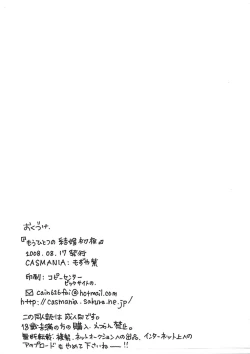 おくづけ.
『もうひとつの結婚初夜』
2008.08.17 発行
CASMANIA:もずや紫
印刷:コピーセンター
ビックサイトの.
✉ cain626foi@hotmail.com
http://casmania.sakura.ne.jp/
この同人誌は成人向です。
18歳未満の方の購入、えつらん禁止。
無断転載、複製、ネットオークションへの出品、インターネット上への
アップロードもやめて下さいね——!!